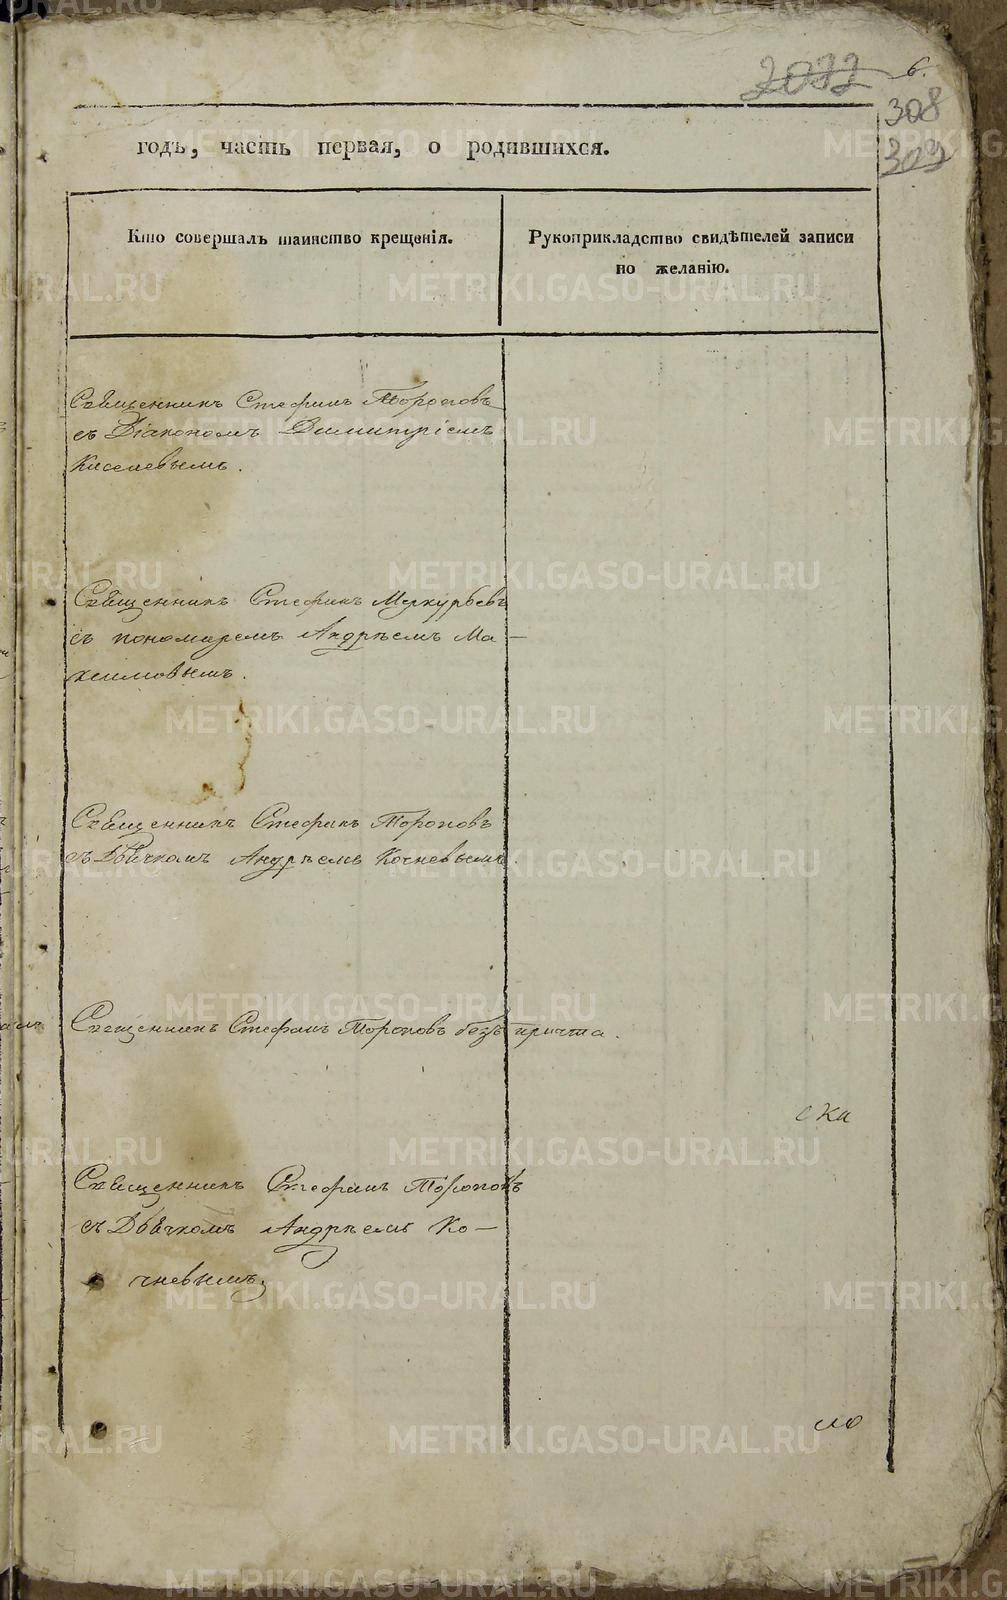 2022 6.
308
309
годъ, часть первая, о родившихся.
Кто совершалъ таинство крещенія.
Рукоприкладство свидѣтелей записи
по желанію.
Священникъ Стефанъ Тороповъ
съ Діакономъ Димитріемъ
Киселевымъ.
Священникъ Стефанъ Меркурьевъ
съ пономаремъ Андреемъ Ма-
ксимовымъ.
Священникъ Стефанъ Тороповъ
съ Дьячкомъ Андреемъ Кочневымъ.
Священникъ Стефанъ Тороповъ безъ причта.
ска
Священникъ Стефанъ Тороповъ
съ Дьячкомъ Андреемъ Ко-
чневымъ.
ло
METRIKI.GASO-URAL.RU